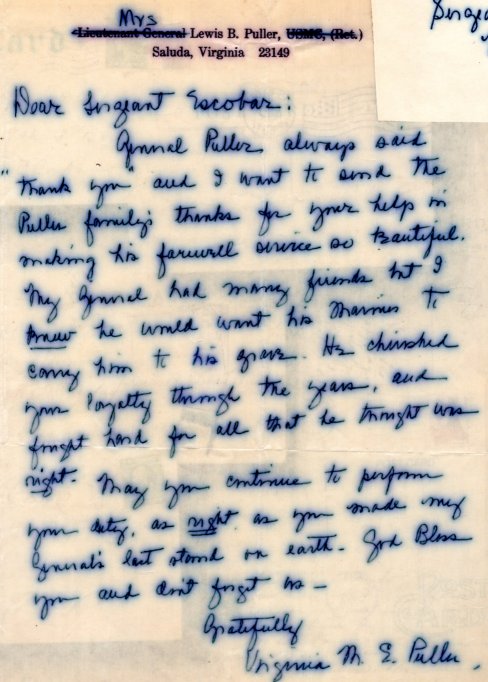 Mrs
Lieutenant General Lewis B. Puller, USMC, (Ret.)
Saluda, Virginia 23149
Dear Sergeant Escobar:
General Puller always said
"thank you" and I want to send the
Puller family's thanks for your help in
making his farewell service so beautiful.
My General had many friends but I
knew he would want his Marines to
carry him to his grave. He cherished
your loyalty through the years, and
fought hard for all that he thought was
right. May you continue to perform
your duty, as right as you made my
General's last stand on earth. God Bless
you and don't forget us —
Gratefully
Virginia M. E. Puller.